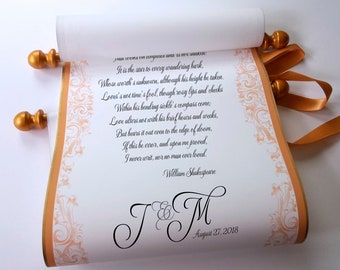 It is the star to every wandering bark,
Whose worth's unknown, although his height be taken.
Love's not time's fool, though rosy lips and cheeks
Within his bending sickle's compass come;
Love alters not with his brief hours and weeks,
But bears it out even to the edge of doom.
If this be error, and upon me proved,
I never writ, nor no man ever loved.
William Shakespeare
J & M
August 27, 2018